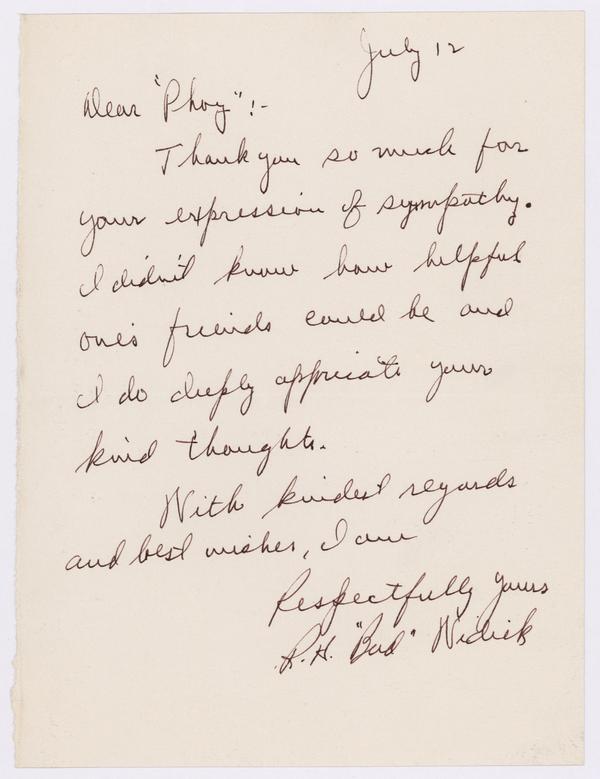 July 12
Dear "Phoy":-
Thank you so much for
your expression of sympathy.
I didn't know how helpful
one's friends could be and
I do deeply appreciate your
kind thoughts.
With kindest regards
and best wishes, I am
Respectfully yours
R. H. "Bud" Widick